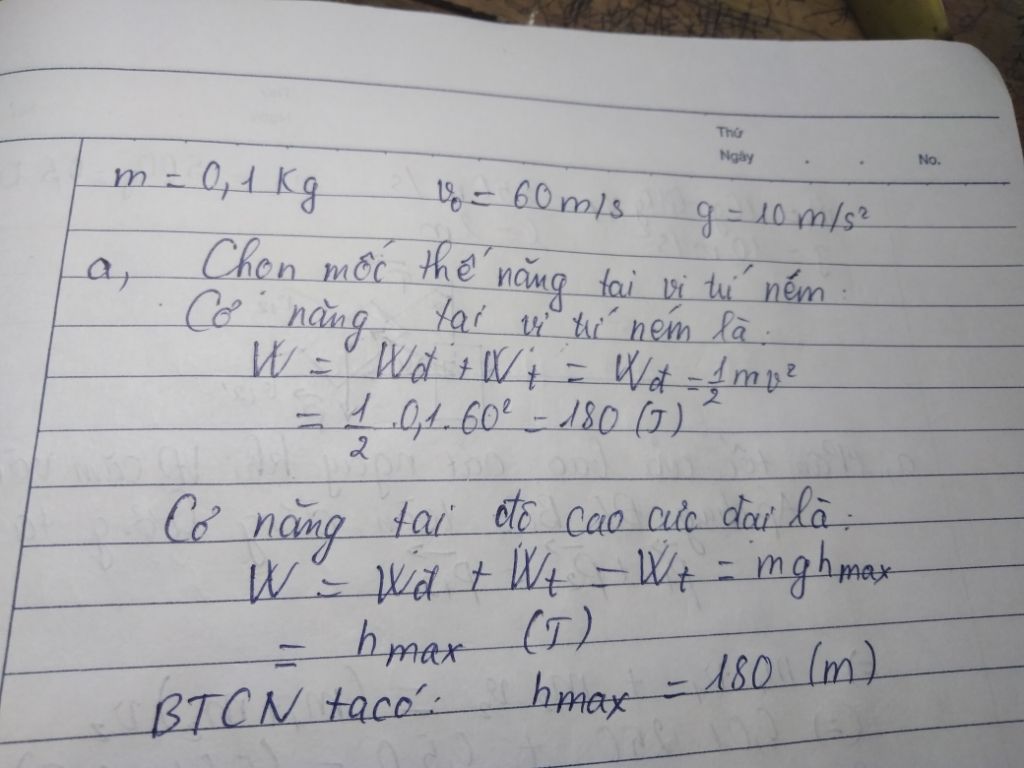 Thứ
Ngày . . No.
m = 0,1 Kg v₀ = 60 m/s g = 10 m/s²
a, Chọn mốc thế năng tại vị trí ném.
Cơ năng tại vị trí ném là:
W = Wđ + Wt = Wđ = 1/2 mv²
= 1/2 .0,1. 60² = 180 (J)
Cơ năng tại độ cao cực đại là:
W = Wđ + Wt - Wt = mghmax
= hmax (J)
BTCN ta có: hmax = 180 (m)